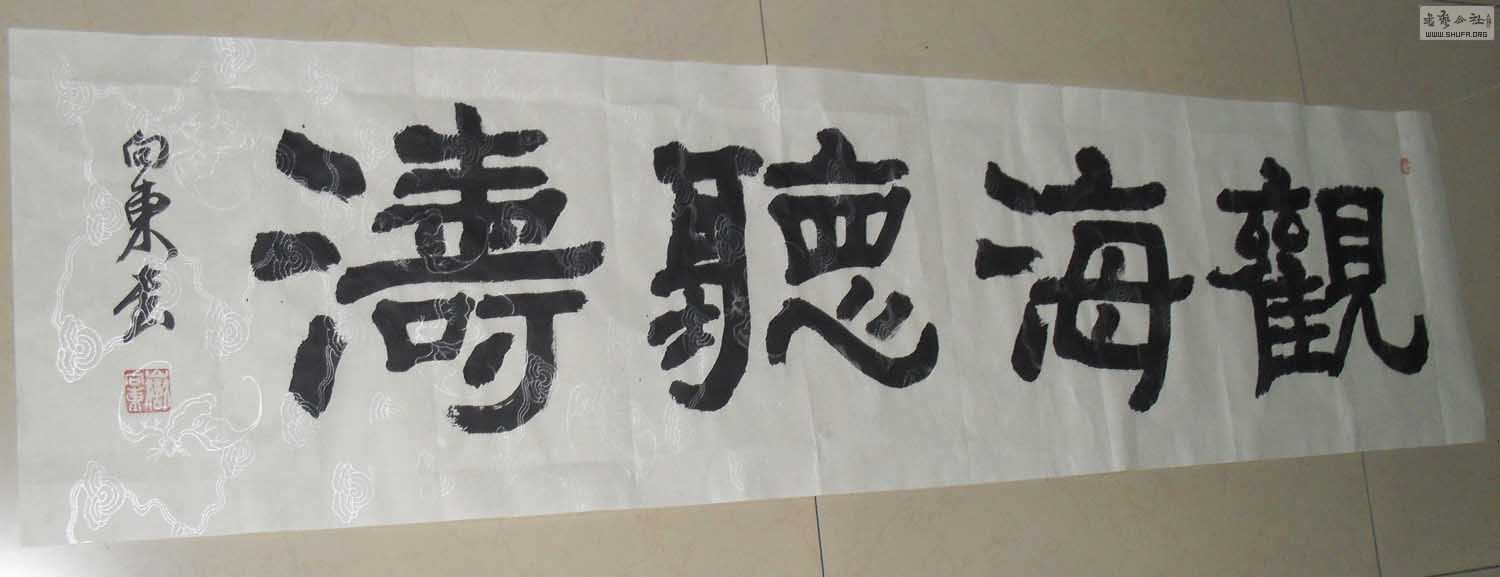 觀海聽濤
向東書
書藝公社
WWW.SHUFA.ORG